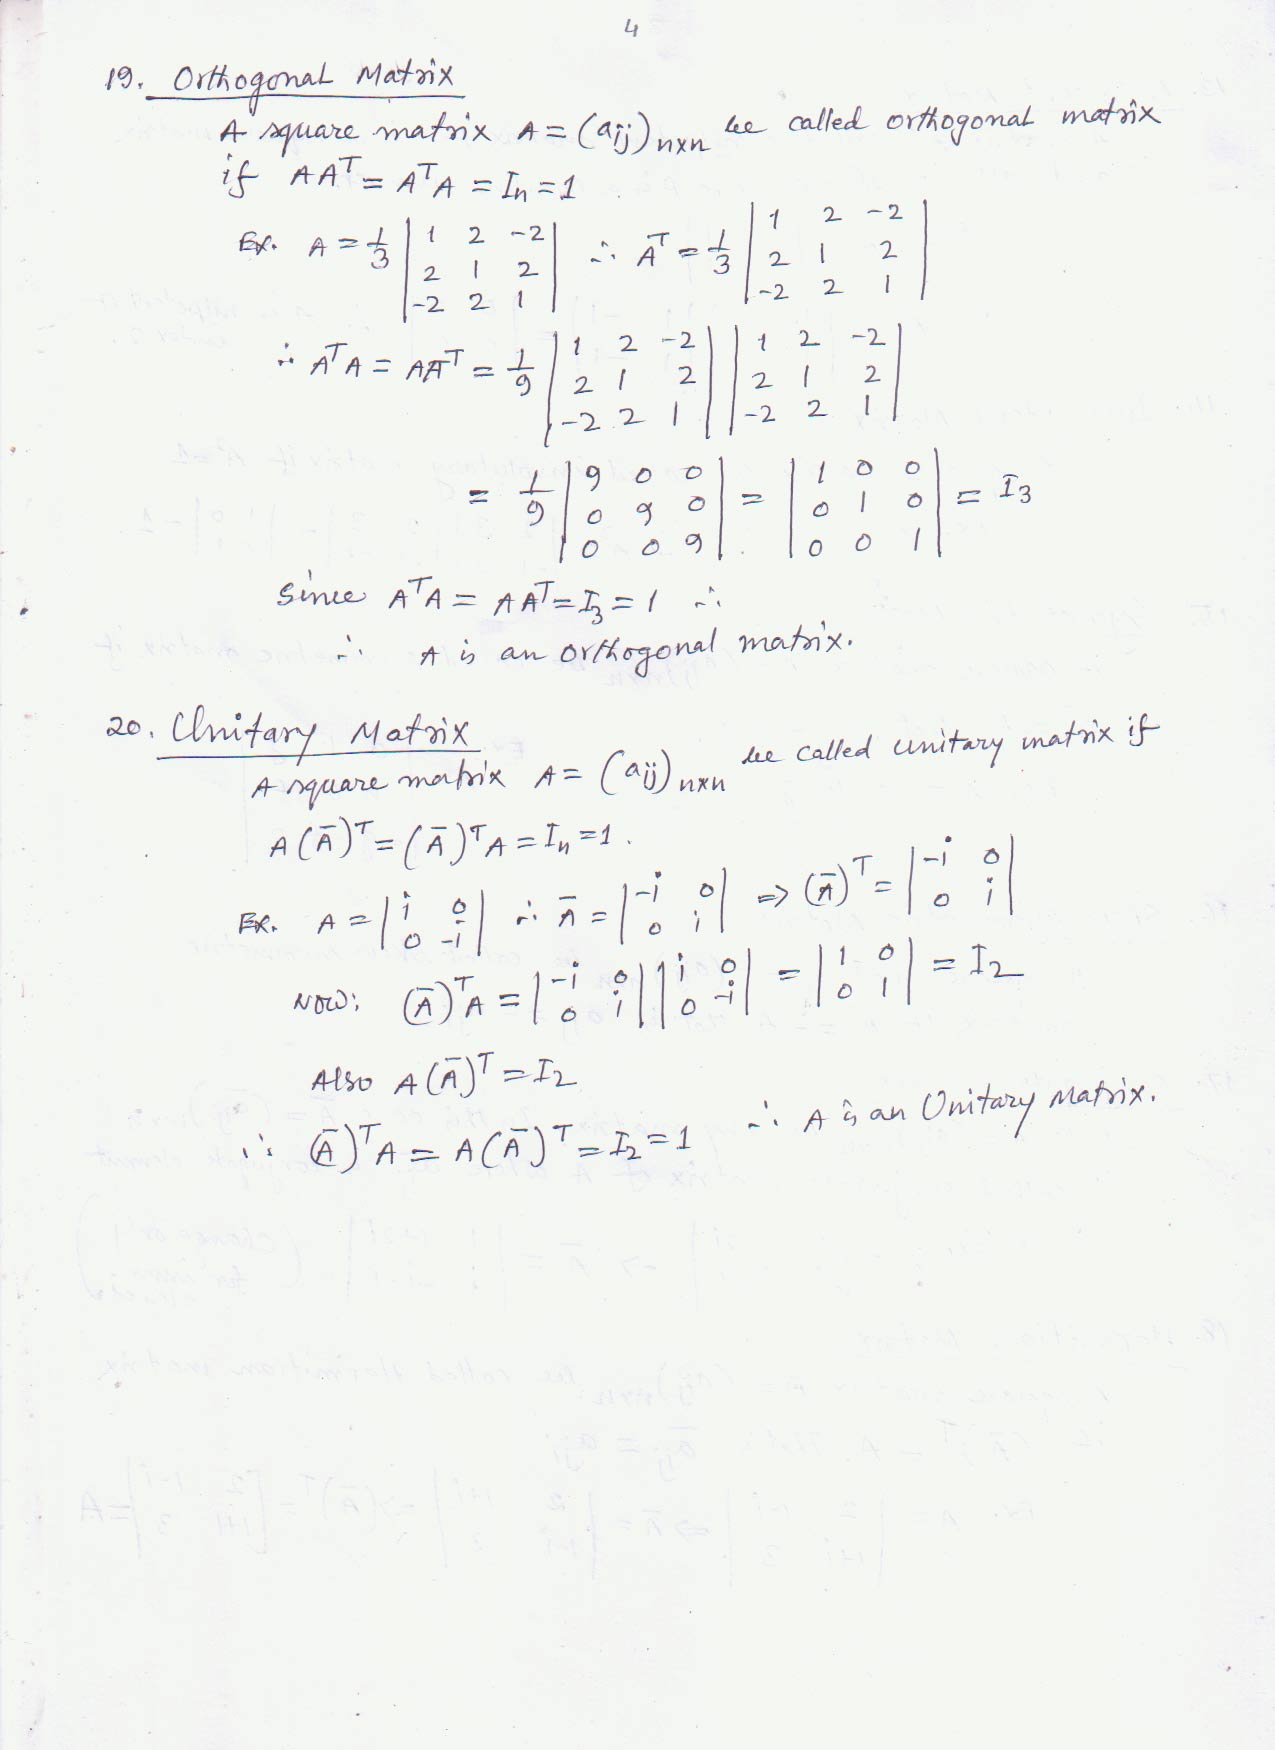 4
19. Orthogonal Matrix
A square matrix A = (aij)nxn be called orthogonal matrix
if AA^T = A^TA = In = 1
Ex. A = 1/3 |1 2 -2| ∴ A^T = 1/3 |1 2 -2|
|2 1 2| |2 1 2|
|-2 2 1| |-2 2 1|
∴ A^TA = AA^T = 1/9 |1 2 -2| |1 2 -2|
|2 1 2| |2 1 2|
|-2 2 1| |-2 2 1|
= 1/9 |9 0 0| = |1 0 0| = I3
|0 9 0| |0 1 0|
|0 0 9| |0 0 1|
Since A^TA = AA^T = I3 = 1 ∴
∴ A is an orthogonal matrix.
20. Unitary Matrix
A square matrix A = (aij)nxn be called unitary matrix if
A(Ā)^T = (Ā)^TA = In = 1.
Ex. A = |i 0| ∴ Ā = |-i 0| => (Ā)^T = |-i 0|
|0 -i| |0 i| |0 i|
Now: (Ā)^TA = |-i 0| |i 0| = |1 0| = I2
|0 i| |0 -i| |0 1|
Also A(Ā)^T = I2
∴ (Ā)^TA = A(Ā)^T = I2 = 1 ∴ A is an Unitary Matrix.